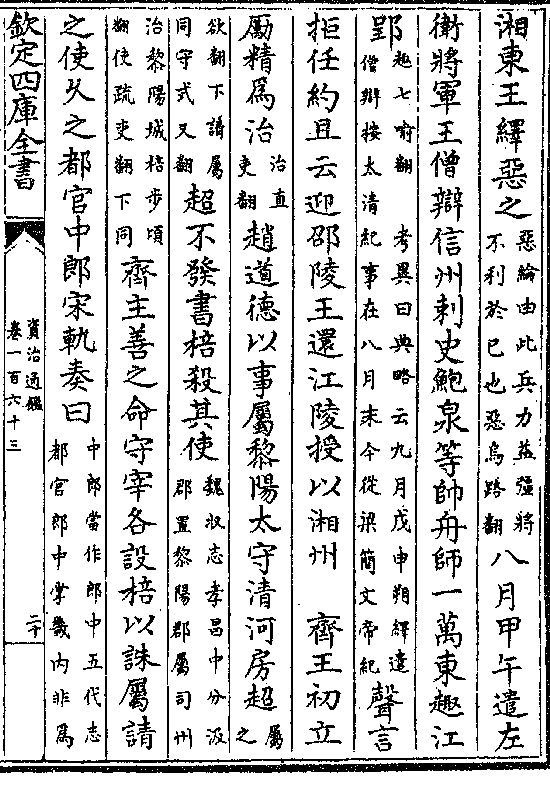 湘東王繹惡之惡綸由此兵力益彊將不利於已也惡烏路翻八月甲午遣左
衛將軍王僧辯信州刺史鮑泉等帥舟師一萬東趣江
郢趣七喻翻考異曰典略云九月戊申朔繹遣僧辯按太清紀事在八月末今從梁簡文帝紀聲言
拒任約且云迎邵陵王還江陵授以湘州 齊王初立
勵精為治治直吏翻趙道德以事屬黎陽太守清河房超屬之
欲翻下請屬同守式又翻超不發書棓殺其使魏收志孝昌中分汲郡置黎陽郡屬司州
治黎陽城棓步項翻使疏吏翻下同齊主善之命守宰各設棓以誅屬請
之使久之都官中郎宋軌奏曰中郎當作郎中五代志都官郎中掌畿内非為
欽定四庫全書
資治通鑑
卷一百六十三
二十